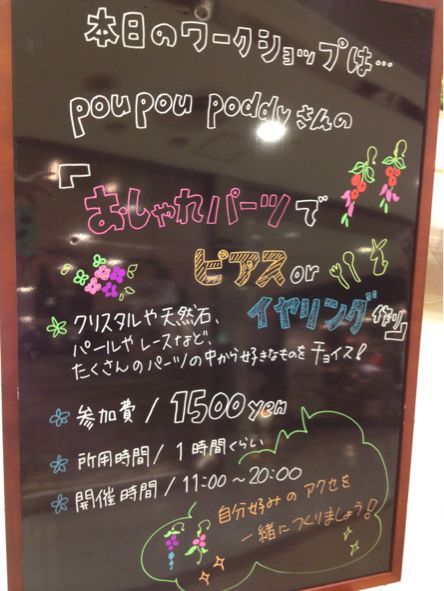 本日のワークショップは…
poupou poddyさんの
『おしゃれパーツで
ピアスor
イヤリング作り』
クリスタルや天然石、
パールやレースなど、
たくさんのパーツの中から好きなものをチョイス!
参加費/1500yen
所用時間/1時間くらい
開催時間/11:00~20:00
自分好みのアクセを
一緒につくりましょう!